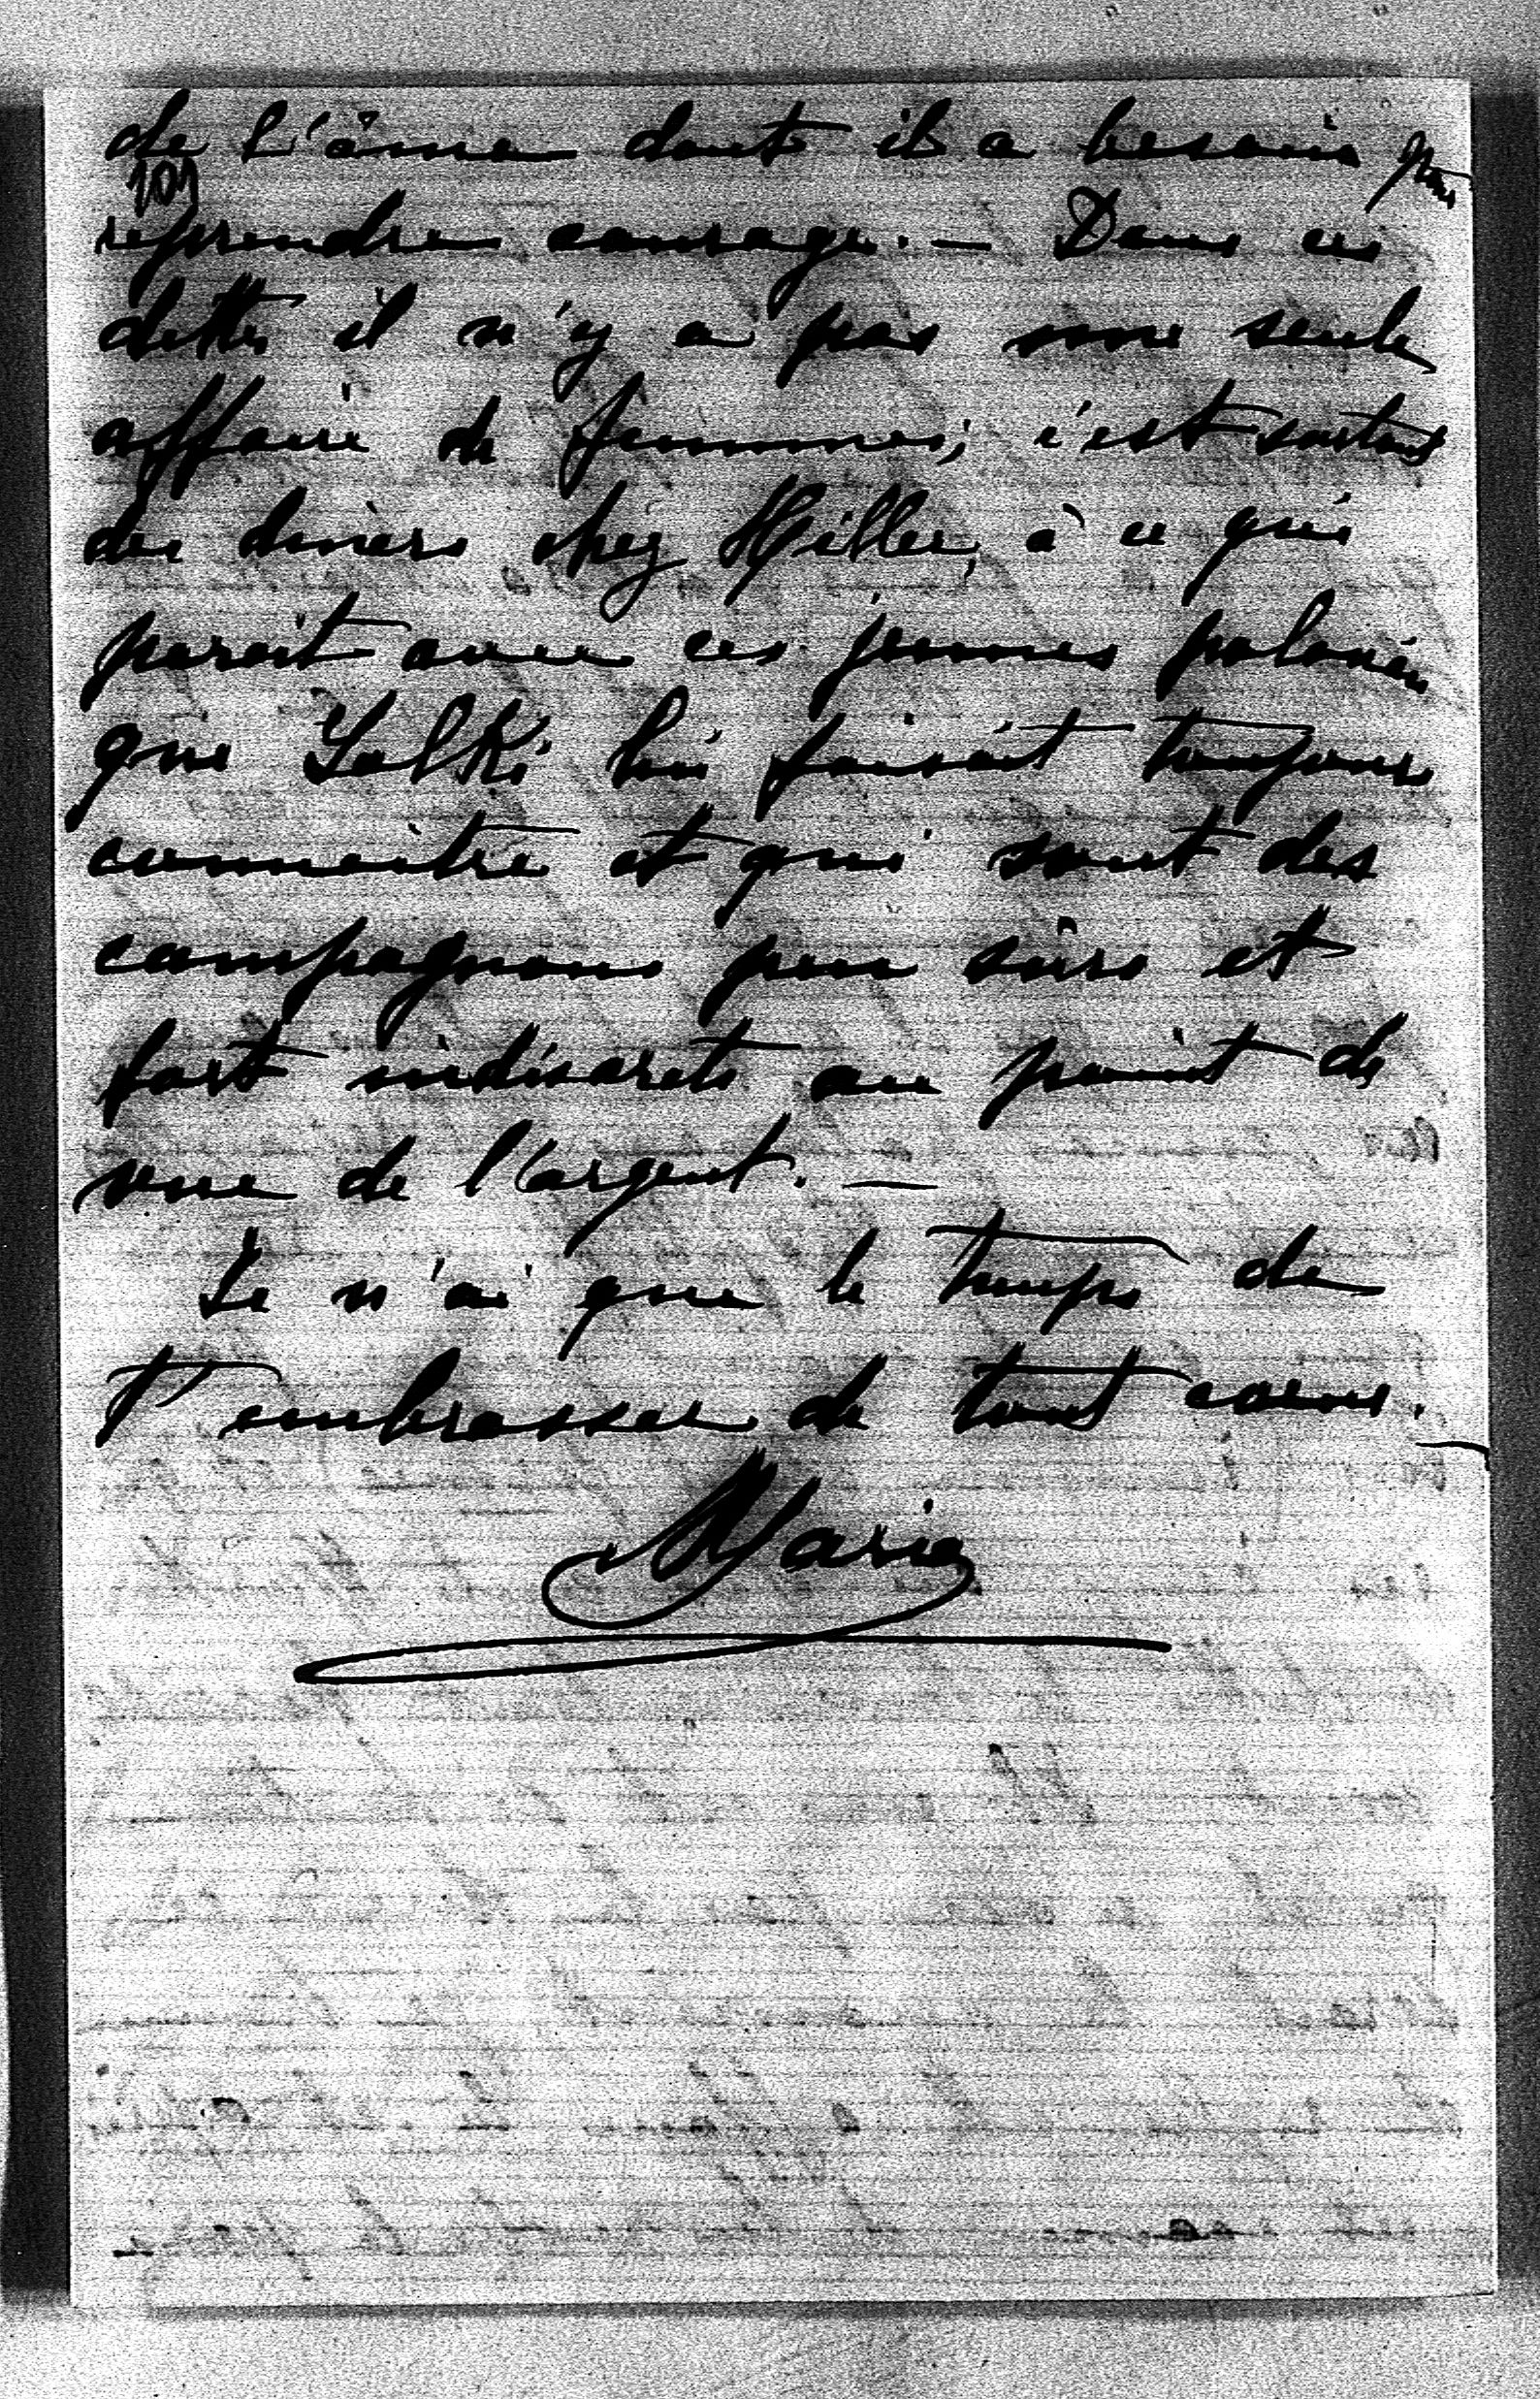 de l'âme dont il a besoin pour
109
reprendre courage. — Dans ces
dettes il n'y a pas une seule
affaire de femmes; c'est surtout
des diners chez Hiller, à ce qui
parait avec ces jeunes polonais
que Salki lui faisait toujours
connaitre et qui sont des
compagnons peu sûrs et
fort indiscrets au point de
vue de l'argent. —
Je n'ai que le temps de
t'embrasser de tout coeur. —
Marie